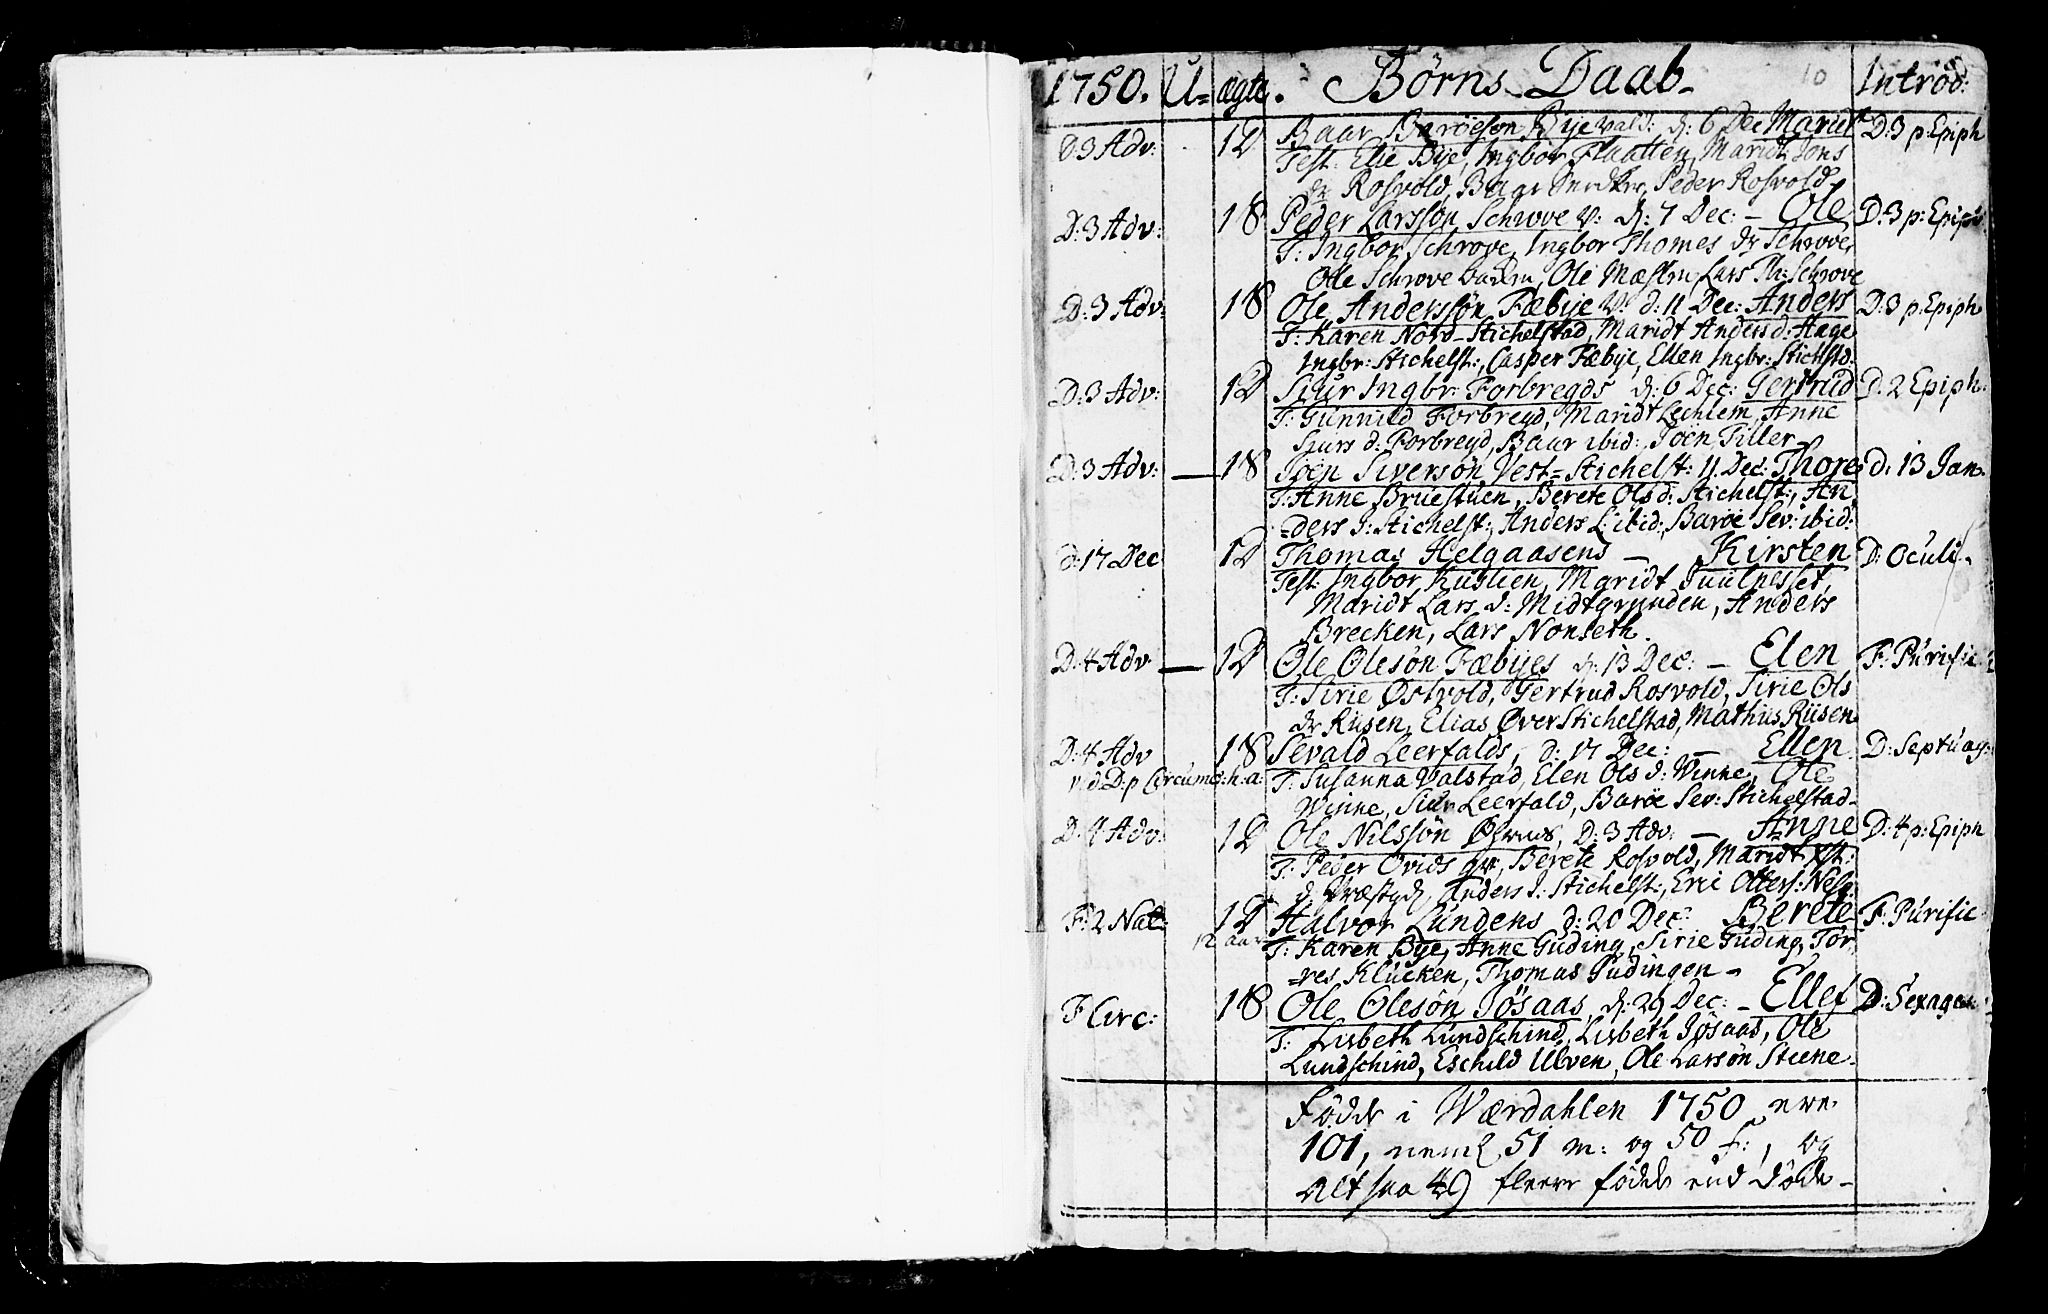 1750. U= ægte. Børns Daab 10 Introd:
D 3 Adv: 12 Baar Baröesøn Bye vald: d: 6 Dec Maridt D: 3 p: Epiph
Test: Elie Bye, Ingbor Flaatten, Maridt Jons
dr Rosvold, Baar Smdkr, Peder Rosvold
D: 3 Adv: 18 Peder Larssøn Schrove v: d: 7 Dec: – Ole D: 3 p: Epiph
T: Ingbor Schrove, Ingbor Thomes dr Schrove,
Olle Schrove, Ole Mæslm, Lars Th: Schrove
D: 3 Adv: 18 Ole Anderssøn Fæbye v: d: 11 Dec: Anders D: 3 p: Epiph
T: Karen Nord-Stichelstad, Maridt Anders d: Hage
Ingbr: Stichelst:, Casper Fæbye, Ellen Ingbr: Stichlstd:
D: 3 Adv: 12 Siur Ingbr: Forbregds d: 6 Dec: Gertrud D: 2 Epiph:
T: Gunnild Forbregd, Maridt Lechlem, Anne
Siurs d: Forbregd, Baar ibid:, Joen Tiller –
D: 3 Adv: — 18 Joen Siversøn Vest=Stichelst: 11 Dec: Thore d: 13 Jan.
T: Anne Bruestuen, Berete Ols d: Stichelst:, An
=ders J: Stichelst:, Anders L: ibid:, Baröe Sev: ibid:
d: 17 Dec 12 Thomas Helgaasens – Kirsten D: Oculi –
Test: Ingbor Kuslien, Maridt Juulnesset,
Maridt Lars d: Midtgrunden, Anders
Brecken, Lars Nonseth.
D: 4 Adv — 12 Ole Olesøn Fæbyes d: 13 Dec: – Elen F: Purific:
T: Sirie Østvold, Gertrud Rosvold, Sirie Ols
dr Riisen, Elias Øver Stichelstad, Mathiis Riisen
D: 4 Adv 18 Sevald Leerfalds, d: 17 Dec: – Ellen D: Septuag:
vid. D: p Circumc: h.a: T: Susanna Valstad, Elen Ols d: Winne, Ole
Winne, Siur Leerfald, Baröe Sev: Stichelstad –
D: 4 Adv: 12 Ole Nilssøn, D: 3 Adv: – Anne D: 4 p: Epiph
T: Peder Ovids, Berete Rosvold, Maridt Xst:
d. Præstgd, Anders J: Stichelst:, Eric Ollers: Nesg:
F: 2 Nat: 12 Halvor Lundens d: 20 Dec: Berete F: Purific
12 aar T: Karen Bye, Anne Guding, Sirie Guding, Tor
=res Klucken, Thomas Gudingen –
F Circ: 18 Ole Olesøn Jösaas, d: 29 Dec: – Ellef D: Sexages:
T: Lisbeth Lundschind, Lisbeth Jösaas, Ole
Lundschind, Eschild Ulven, Ole Larsøn Steene –
Föde i Værdahlen 1750 ere
101, neml 51 m: og 50 f:, og
Altsaa 49 fleere föde end döde –